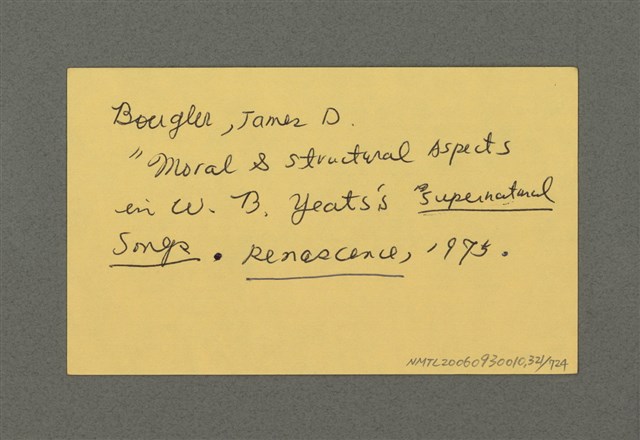 Bougler, James D.
"Moral & structural Aspects
in W. B. Yeats's "Supernatural
Songs. Renascence, 1975.
NMTL20060930010,321/724